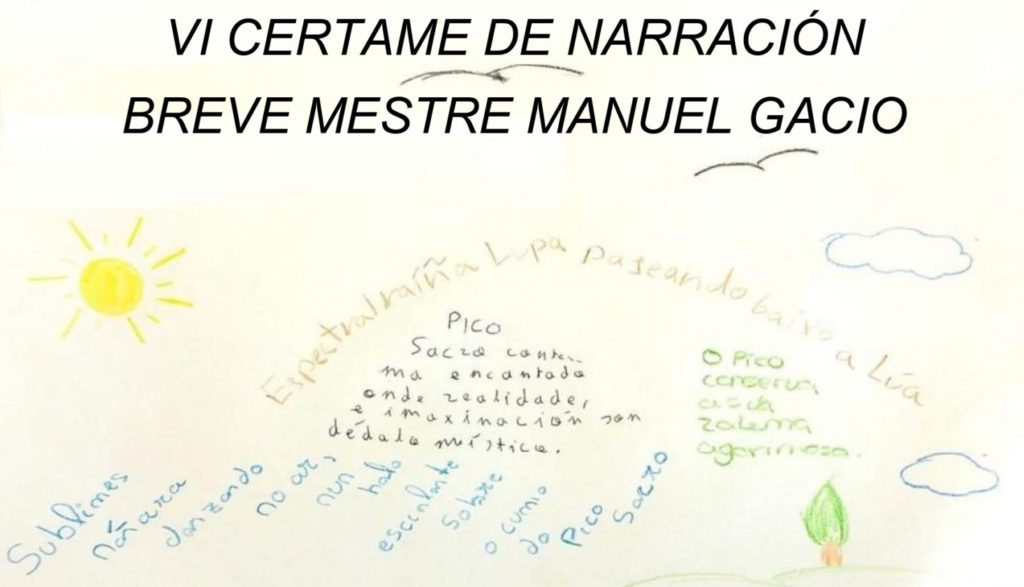 VI CERTAME DE NARRACIÓN
BREVE MESTRE MANUEL GACIO
Espectral raíña Lupa paseando baixo a Lúa
PICO
Sacro
ma encantado
onde realidade,
e imaxinación son
dédalo místico.
O Pico
conserva
zalema
agarimosa.
Sublimes
danzando
no ar,
nun
halo
sobre
o cumio
do
Pico
Sacro